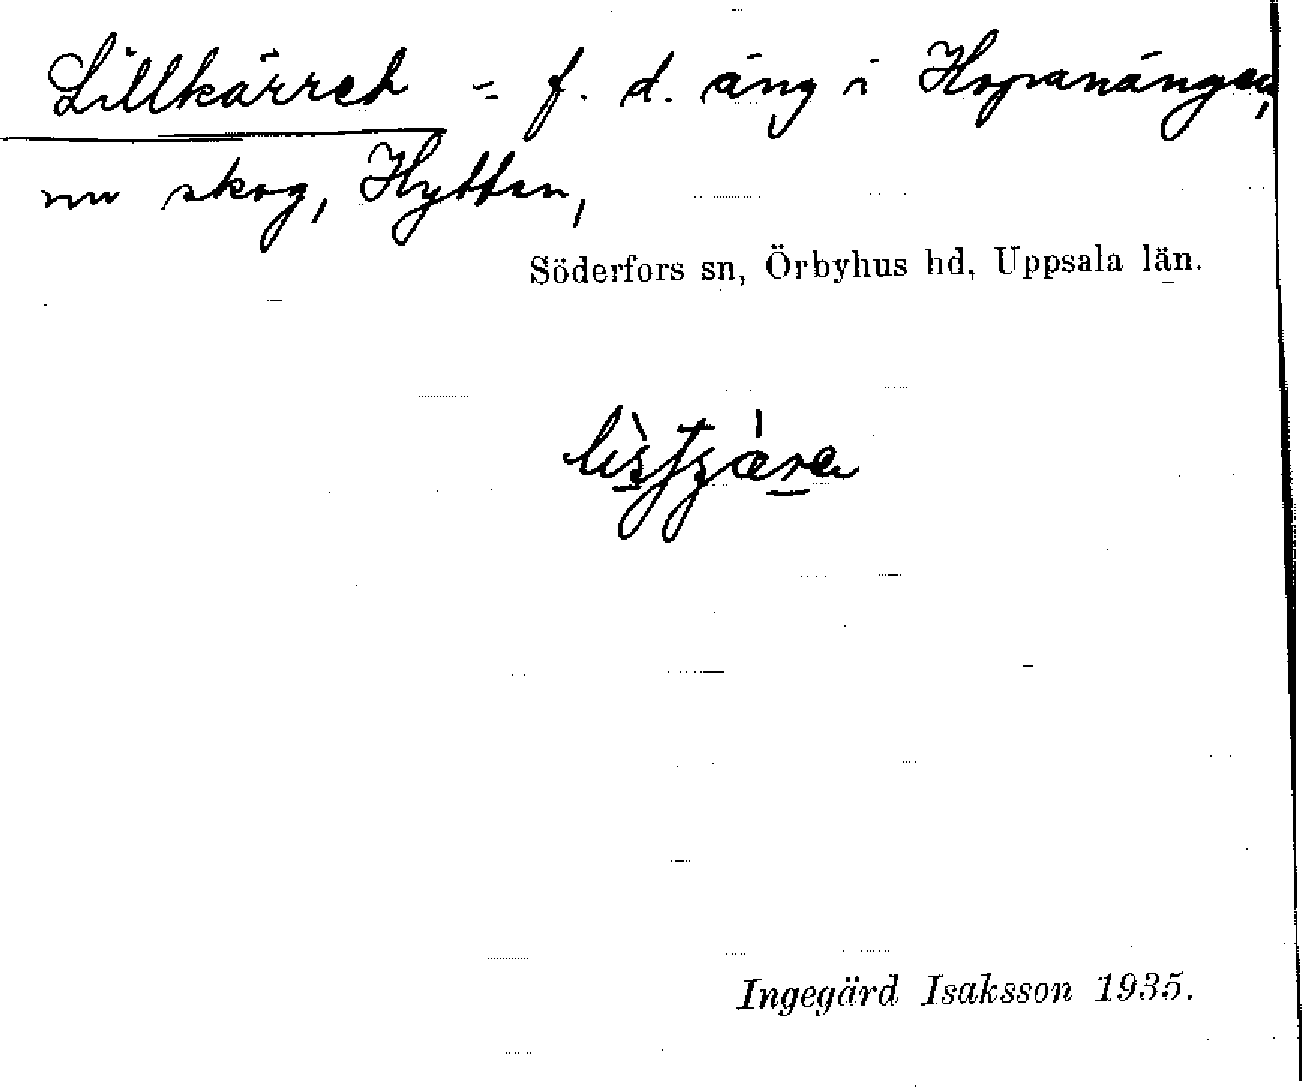 Lillkärret = f. d. äng i Hopanängen,
nu skog, Hyttan,
Söderfors sn, Örbyhus hd, Uppsala län.
Ingegärd Isaksson 1935.